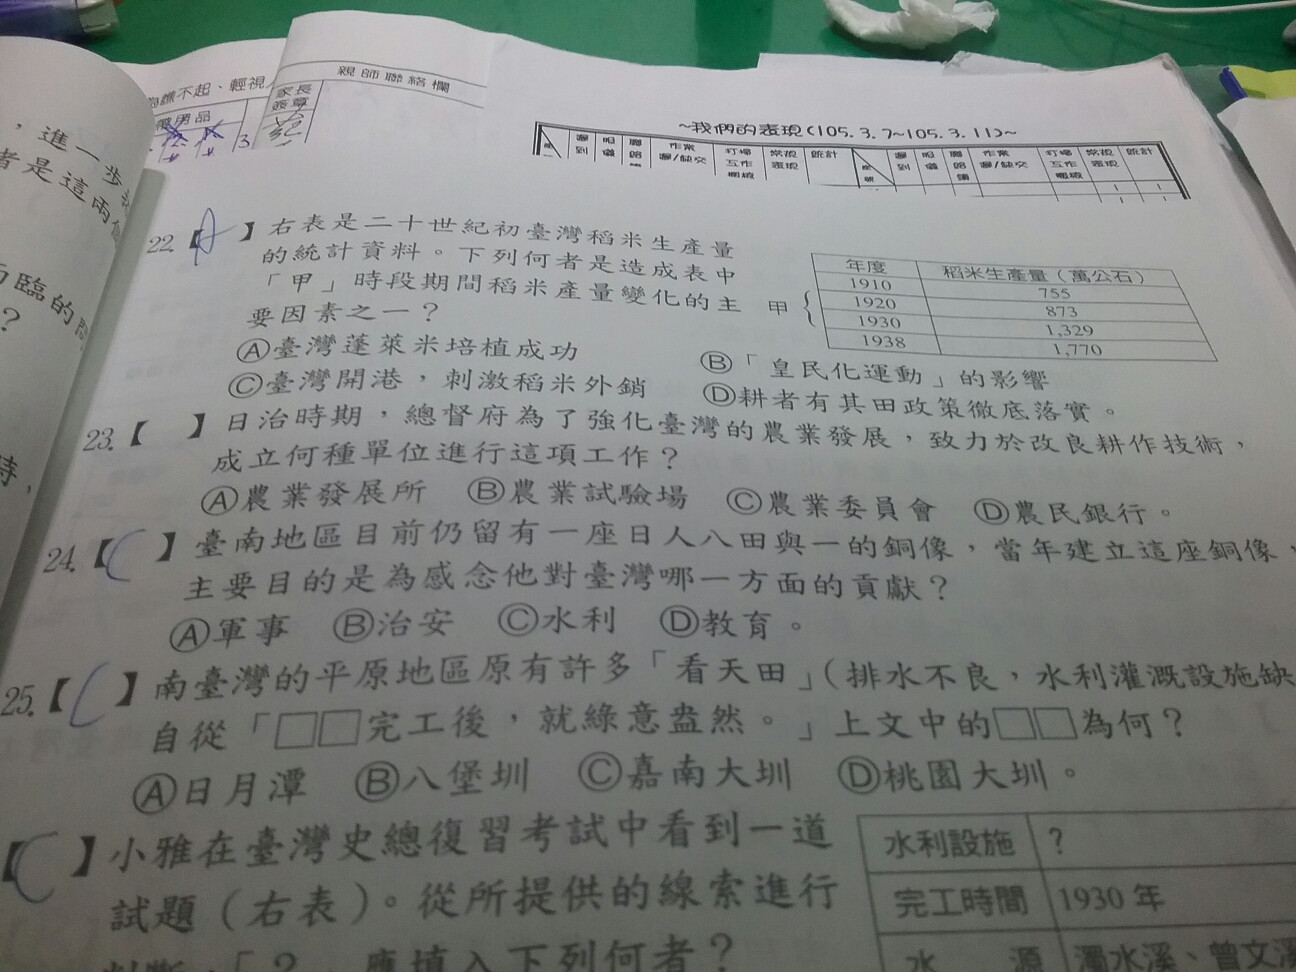 親師聯絡欄
家長
簽章
~我們的表現(105.3.7~105.3.11)~
，進一步
者是這兩個
面臨的問
？
時，
22.【A】右表是二十世紀初臺灣稻米生產量
的統計資料。下列何者是造成表中
「甲」時段期間稻米產量變化的主
要因素之一？
Ⓐ臺灣蓬萊米培植成功 Ⓑ「皇民化運動」的影響
Ⓒ臺灣開港，刺激稻米外銷 Ⓓ耕者有其田政策徹底落實。
年度 稻米生產量（萬公石）
1910 755
1920 873
1930 1,329
1938 1,770
甲{
23.【 】日治時期，總督府為了強化臺灣的農業發展，致力於改良耕作技術，
成立何種單位進行這項工作？
Ⓐ農業發展所 Ⓑ農業試驗場 Ⓒ農業委員會 Ⓓ農民銀行。
24.【C】臺南地區目前仍留有一座日人八田與一的銅像，當年建立這座銅像，
主要目的是為感念他對臺灣哪一方面的貢獻？
Ⓐ軍事 Ⓑ治安 Ⓒ水利 Ⓓ教育。
25.【C】南臺灣的平原地區原有許多「看天田」（排水不良，水利灌溉設施缺
自從「□□完工後，就綠意盎然。」上文中的□□為何？
Ⓐ日月潭 Ⓑ八堡圳 Ⓒ嘉南大圳 Ⓓ桃園大圳。
【C】小雅在臺灣史總復習考試中看到一道
試題（右表）。從所提供的線索進行
判斷，「？」應填入下列何者？
水利設施 ？
完工時間 1930 年
水 源 濁水溪、曾文溪